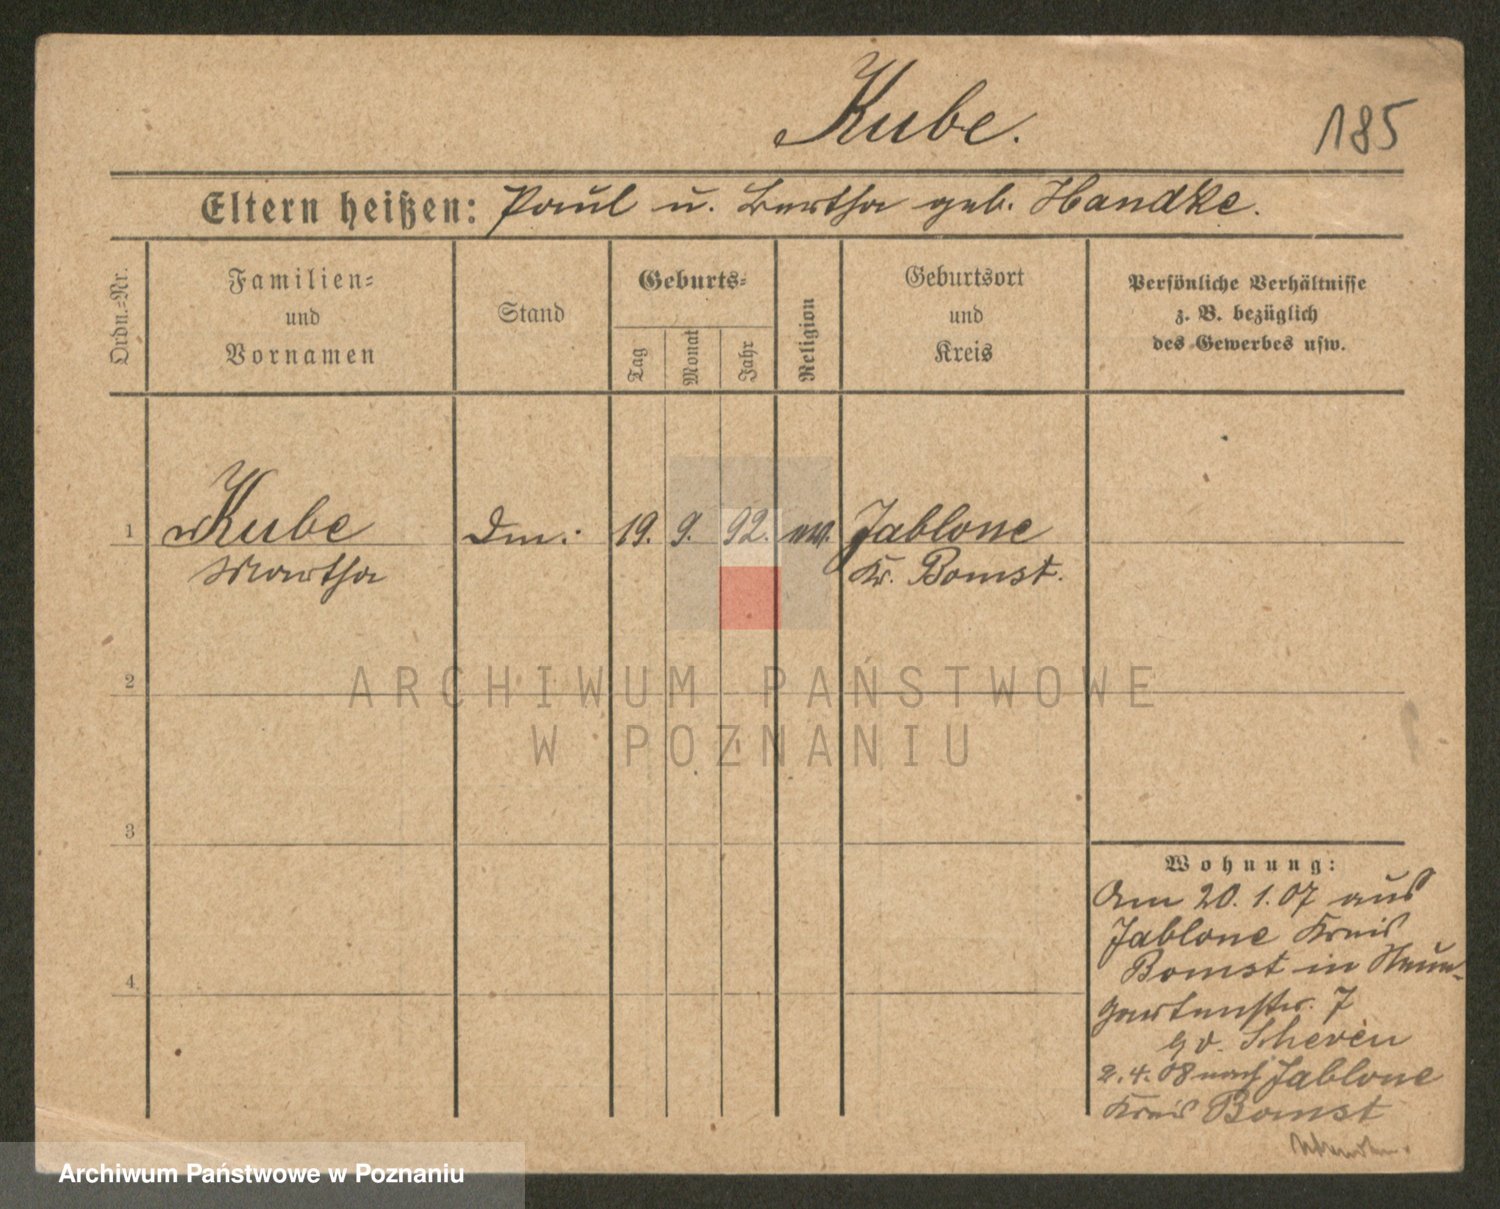 Kube.
185
Eltern heißen: Paul u. Bertha geb. Handke.
Ordn.=Nr.
Familien=
und
Vornamen
Stand
Geburts=
Tag
Monat
Jahr
Religion
Geburtsort
und
Kreis
Persönliche Verhältnisse
z. B. bezüglich
des Gewerbes usw.
1 Kube 19. 9. 92. Jablone
Martha Kr. Bomst.
2
ARCHIWUM PAŃSTWOWE
W POZNANIU
3
4
Wohnung:
Am 20. 1. 07 aus
Jablone Kreis
Bomst in
gartenstr. 7
Scheven
2. 4. 08 nach Jablone
Kreis Bomst
Archiwum Państwowe w Poznaniu